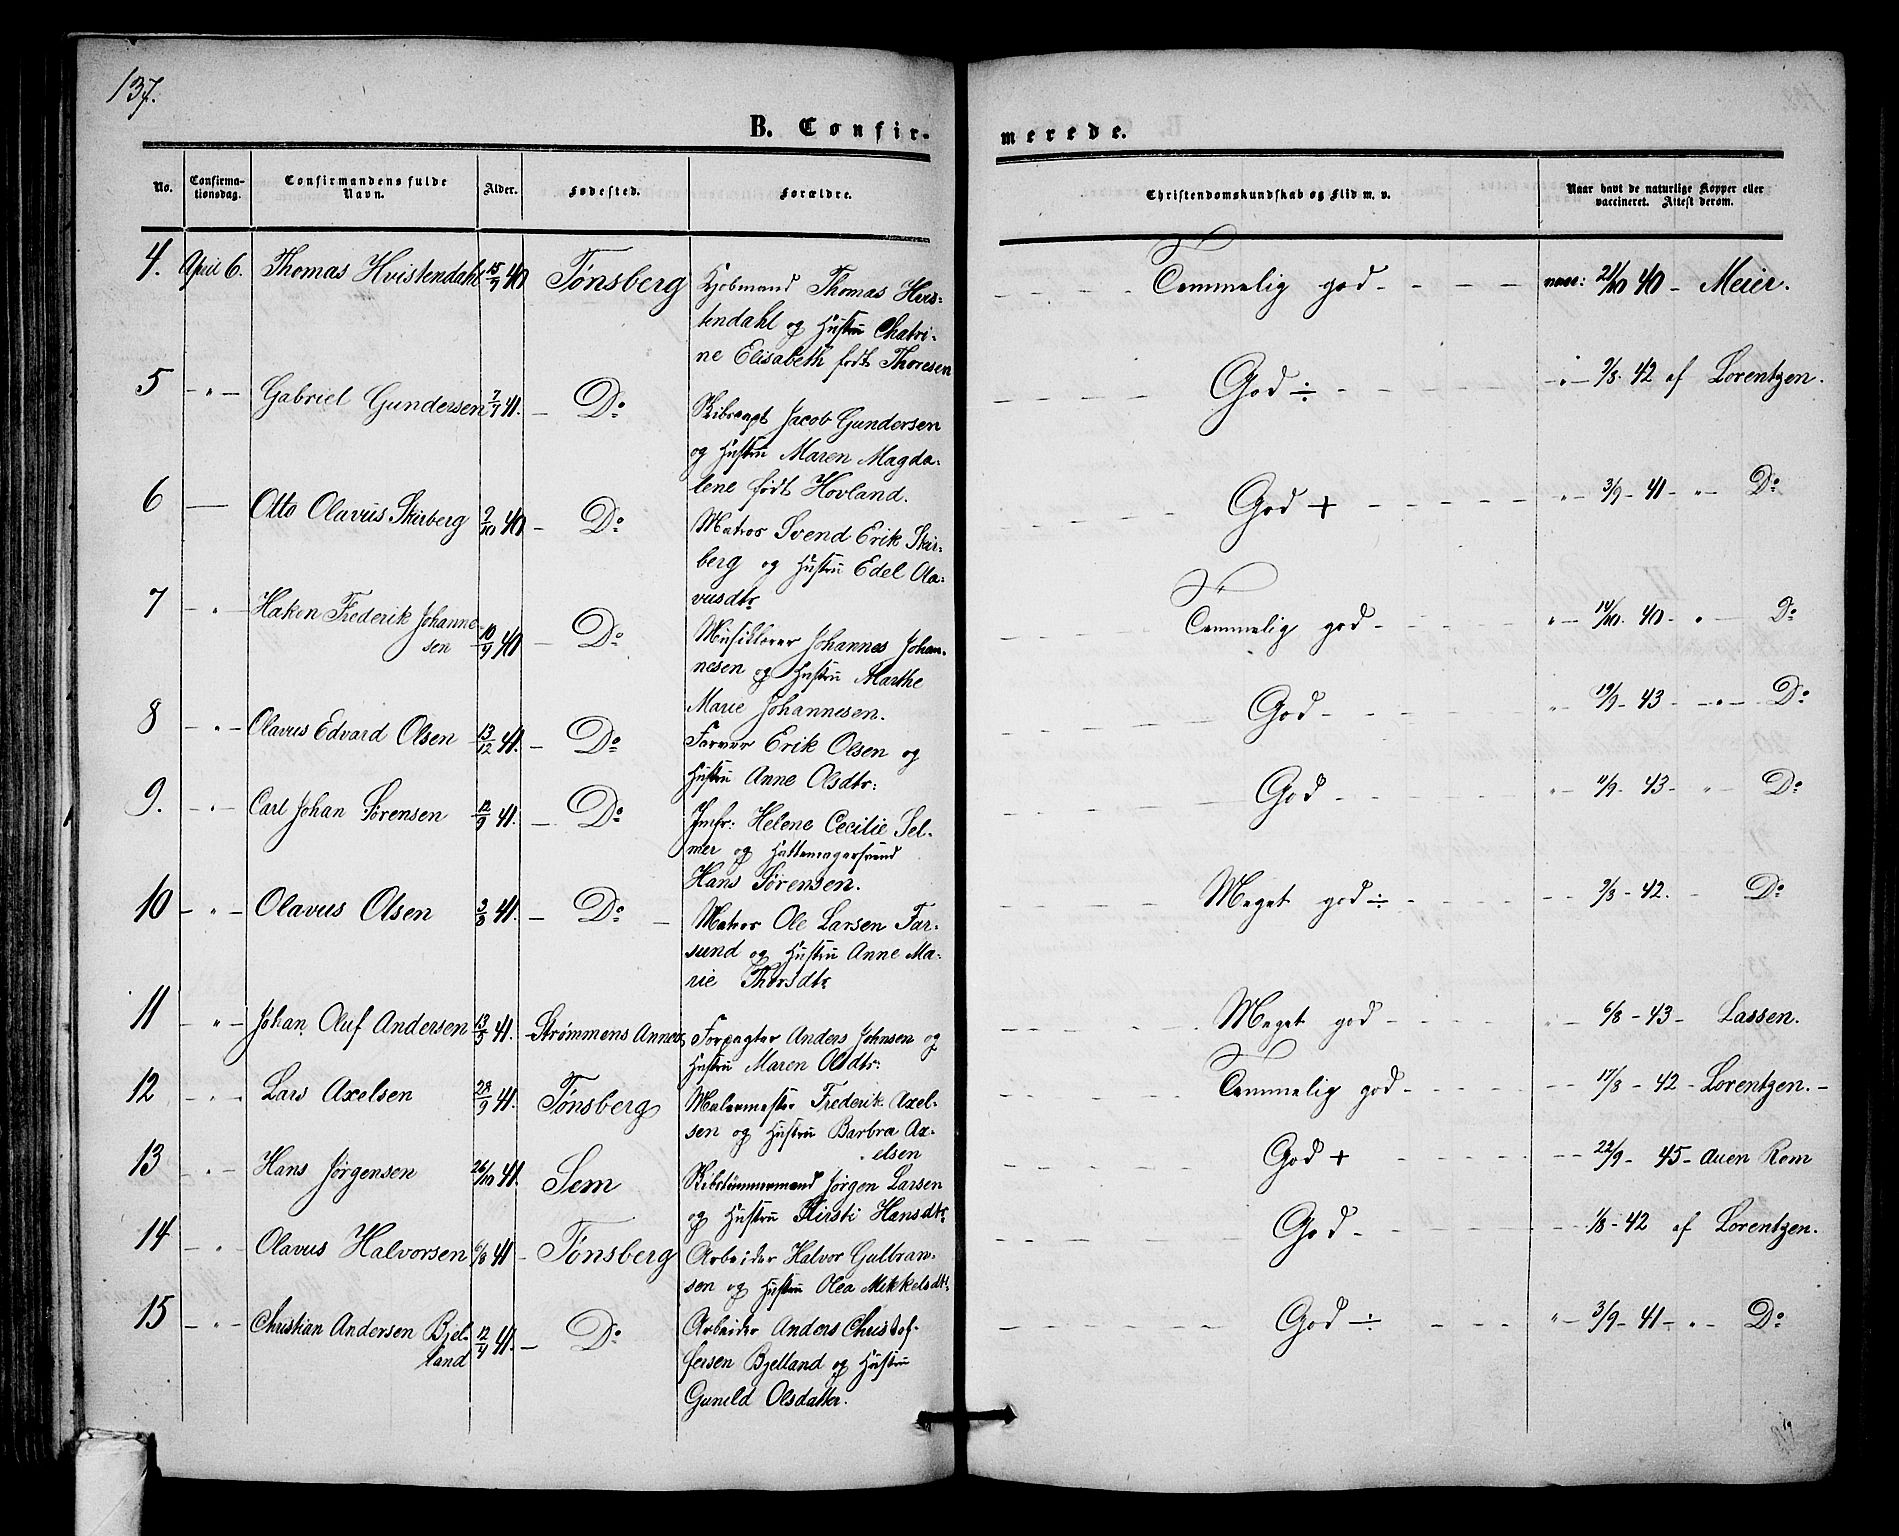 137.
B. Confir-
merede.
No.
Confirma-
tionsdag.
Confirmandens fulde
Navn.
Alder.
Fødested.
Forældre.
Christendomskundskab og Flid m. v.
Naar havt de naturlige Kopper eller
vaccineret. Attest derom.
4. April 6. Thomas Hvistendahl 15/7 40 Tønsberg Kjøbmand Thomas Hvis-
tendahl og Hustru Chatri-
ne Elisabeth født Thoresen
Temmelig god - vacc: 21/10 40 - Meier.
5 - " - Gabriel Gundersen 7/7 41. - Do Skibscapt Jacob Gundersen
og Hustru Maren Magda-
lene født Hovland.
God ÷ - " - 9/8. 42 af Lorentzen.
6 — Otto Olavus Skirberg 9/10 40 - Do Matros Svend Erik Skir-
berg og Hustru Edel Ola-
vusdtr
God + " - 3/9 - 41 - " - Do
7 - " - Haken Frederik Johanne-
sen 10/9 40 - Do Musiklærer Johannes Johan-
nesen og Hustru Marthe
Marie Johannesen.
Temmelig god - " - 14/10. 40 - " - Do
8 - " - Olavus Edvard Olsen 13/12 41. - Do Farver Erik Olsen og
Hustru Anne Olsdtr:
God - " - 19/9 - 43 - " - Do
9. - " - Carl Johan Sørensen 12/9 41. - Do Jmfr: Helene Cecilie Sel-
mer og Hattemagersvend
Hans Sørensen.
God - " - 11/9 - 43 - " - Do
10 - " - Olavus Olsen 3/8 41. - Do - Matros Ole Larsen Far-
sund og Hustru Anne Ma-
rie Thorsdtr
Meget god ÷ - 9/8 - 42. - Do
11 - " - Johan Oluf Andersen 13/5 41. - Strømmens Annex Forpagter Anders Johnsen og
Hustru Maren Olsdtr:
Meget god - " - 6/8 - 43 - Lassen.
12 - " - Lars Axelsen 28/9 41. - Tønsberg Malermester Frederik Axel-
sen og Hustru Barbra Ax-
elsen
Temmelig god - 17/8 - 42 - Lorentzen. -
13 - " - Hans Jørgensen 26/10 41. Sem Skibstømmermand Jørgen Larsen
og Hustru Kirsti Hansdtr
God + - 22/9 - 45 - Auen Rom
14 - " - Olavus Halvorsen 6/8 41 - Tønsberg Arbeider Halvor Gulbran-
sen og Hustru Olea Mikkelsdtr
God - 1/8 - 42 af Lorentzen.
15 - " - Christian Andersen Bjel-
land 12/7 41. - Do Arbeider Anders Christof-
fersen Bjelland og Hustru
Guneld Olsdatter.
God ÷ " - 3/9 - 41 - " - Do